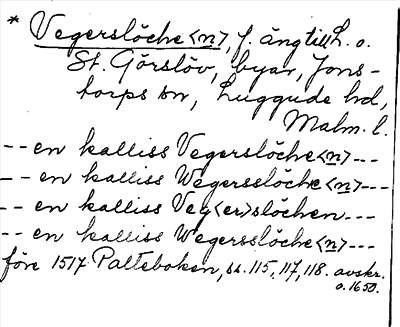 * Vegerslöche <n>, f. äng till L. o.
St. Görslöv, byar, Jons-
torps sn, Luggude hd,
Malm. l.
-- en kalliss Vegerslöche <n> ---
-- en kalliss Wegersslöche <n> ---
-- en kalliss Veg<er>slöchen ---
-- en kalliss Wegersslöche <n> ---
före 1517 Palteboken, ss. 115, 117, 118. avskr.
o. 1650.